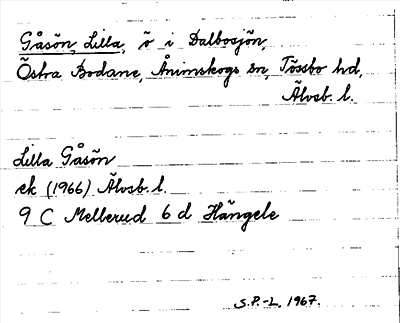 Gåsön, Lilla, ö i Dalbosjön,
Östra Bodane, Ånimskogs sn, Tössbo hd,
Älvsb. l.
Lilla Gåsön
ek (1966) Älvsb. l.
9 C Mellerud 6 d Hängele
S.P.-L. 1967.